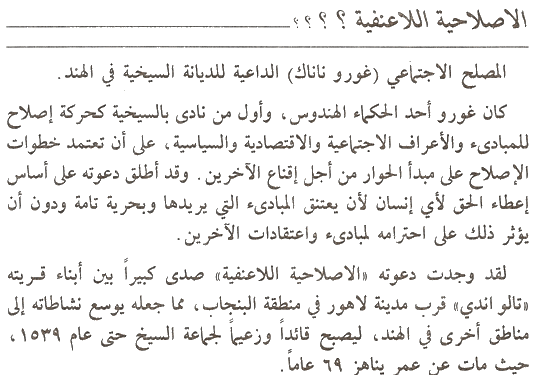 الاصلاحية اللاعنفية ؟ ؟ ؟ ؟ ؟
المصلح الاجتماعي (غورو ناناك) الداعية للديانة السيخية في الهند.
كان غورو أحد الحكماء الهندوس، وأول من نادى بالسيخية كحركة إصلاح
للمبادىء والأعراف الاجتماعية والاقتصادية والسياسية، على أن تعتمد خطوات
الإصلاح على مبدأ الحوار من أجل إقناع الآخرين. وقد أطلق دعوته على أساس
إعطاء الحق لأي إنسان لأن يعتنق المبادىء التي يريدها وبحرية تامة ودون أن
يؤثر ذلك على احترامه لمبادىء واعتقادات الآخرين.
لقد وجدت دعوته «الاصلاحية اللاعنفية» صدى كبيراً بين أبناء قريته
«تالو اندي» قرب مدينة لاهور في منطقة البنجاب، مما جعله يوسع نشاطاته إلى
مناطق أخرى في الهند، ليصبح قائداً وزعيماً لجماعة السيخ حتى عام ١٥٣٩،
حيث مات عن عمر يناهز ٦٩ عاماً.